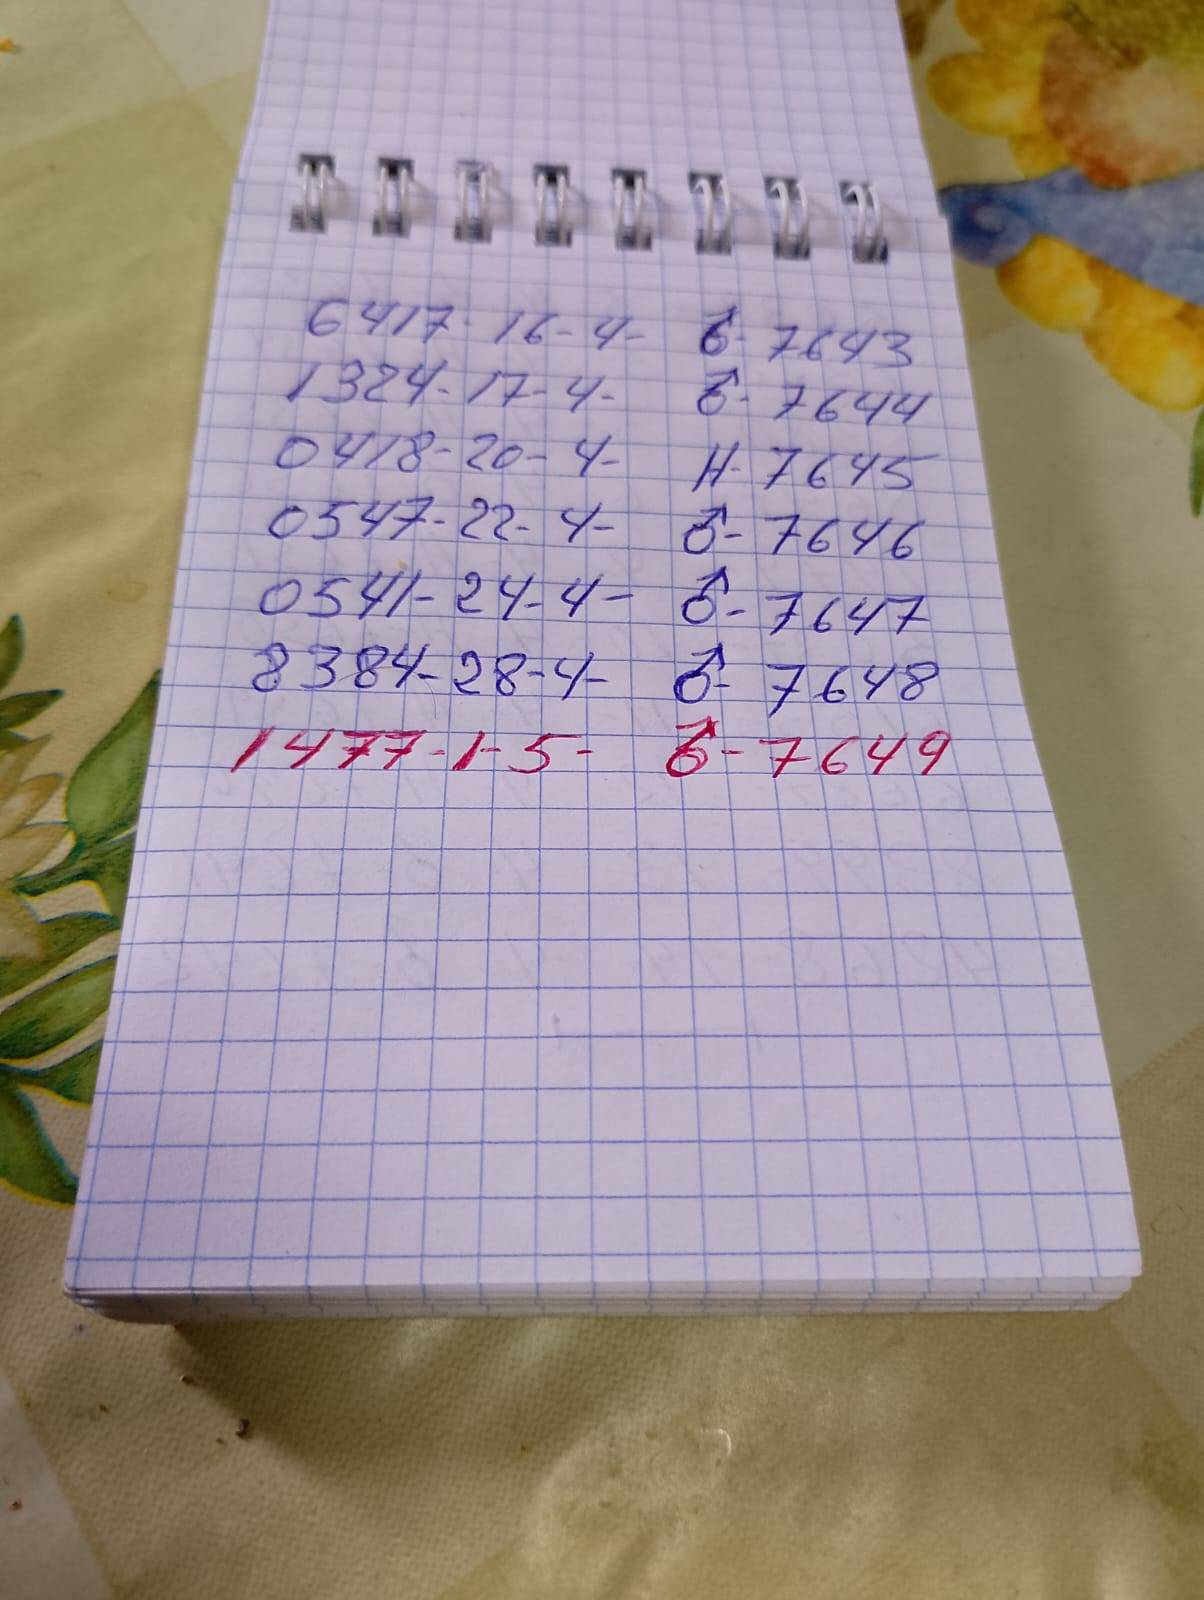 6417-16-4- ♂-7643
1324-17-4- ♂-7644
0418-20-4- H-7645
0547-22-4- ♂-7646
0541-24-4- ♂-7647
8384-28-4- ♂-7648
1477-1-5- ♂-7649